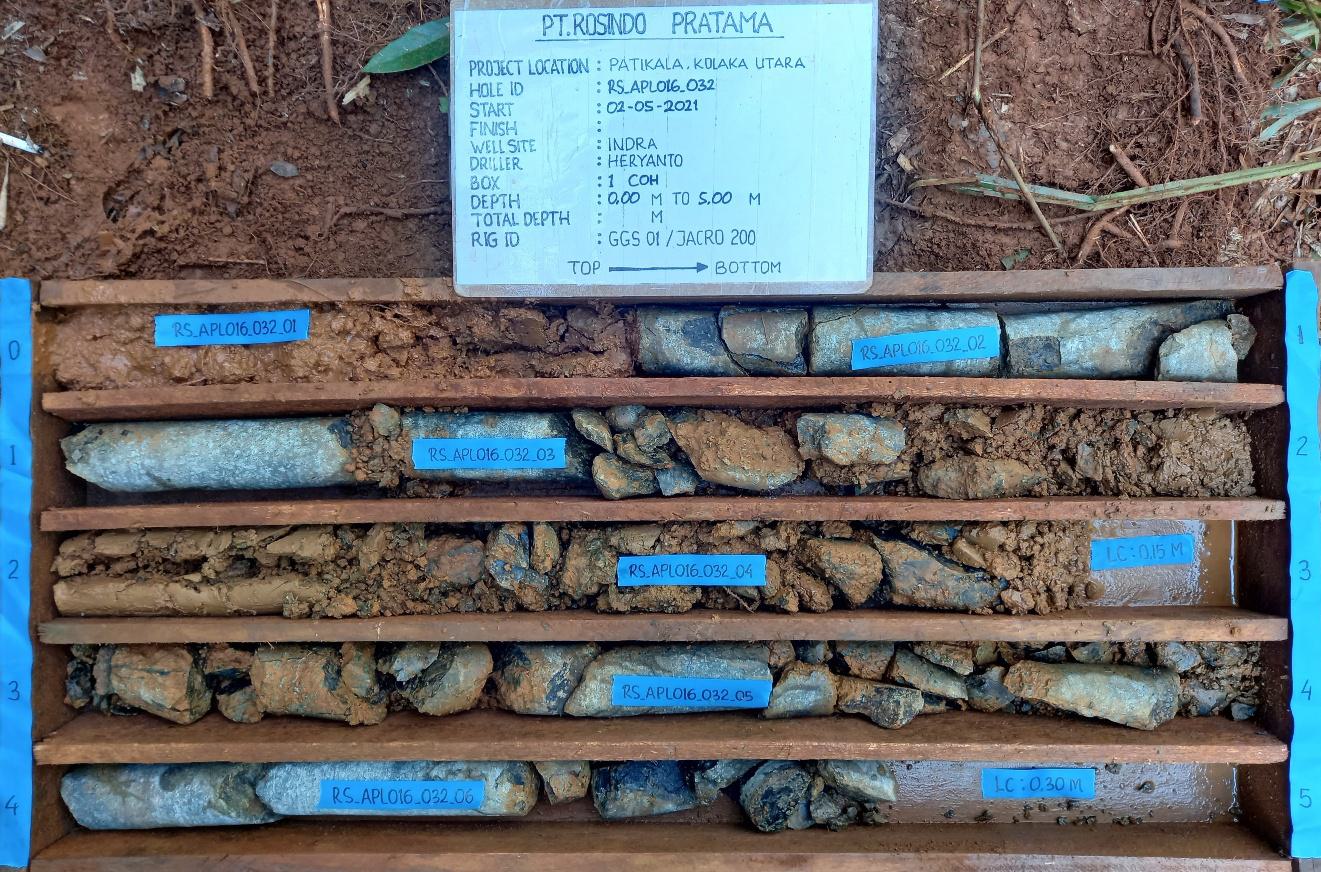 PT. ROSINDO PRATAMA
PROJECT LOCATION : PATIKALA, KOLAKA UTARA
HOLE ID : RS_APL016_032
START : 02-05-2021
FINISH :
WELL SITE : INDRA
DRILLER : HERYANTO
BOX : 1 COH
DEPTH : 0,00 M TO 5,00 M
TOTAL DEPTH : M
RIG ID : GGS 01 / JACRO 200
TOP → BOTTOM
0 RS_APL016_032_01 RS_APL016_032_02 1
1 RS_APL016_032_03 2
2 RS_APL016_032_04 LC : 0.15 M 3
3 RS_APL016_032_05 4
4 RS_APL016_032_06 LC : 0.30 M 5